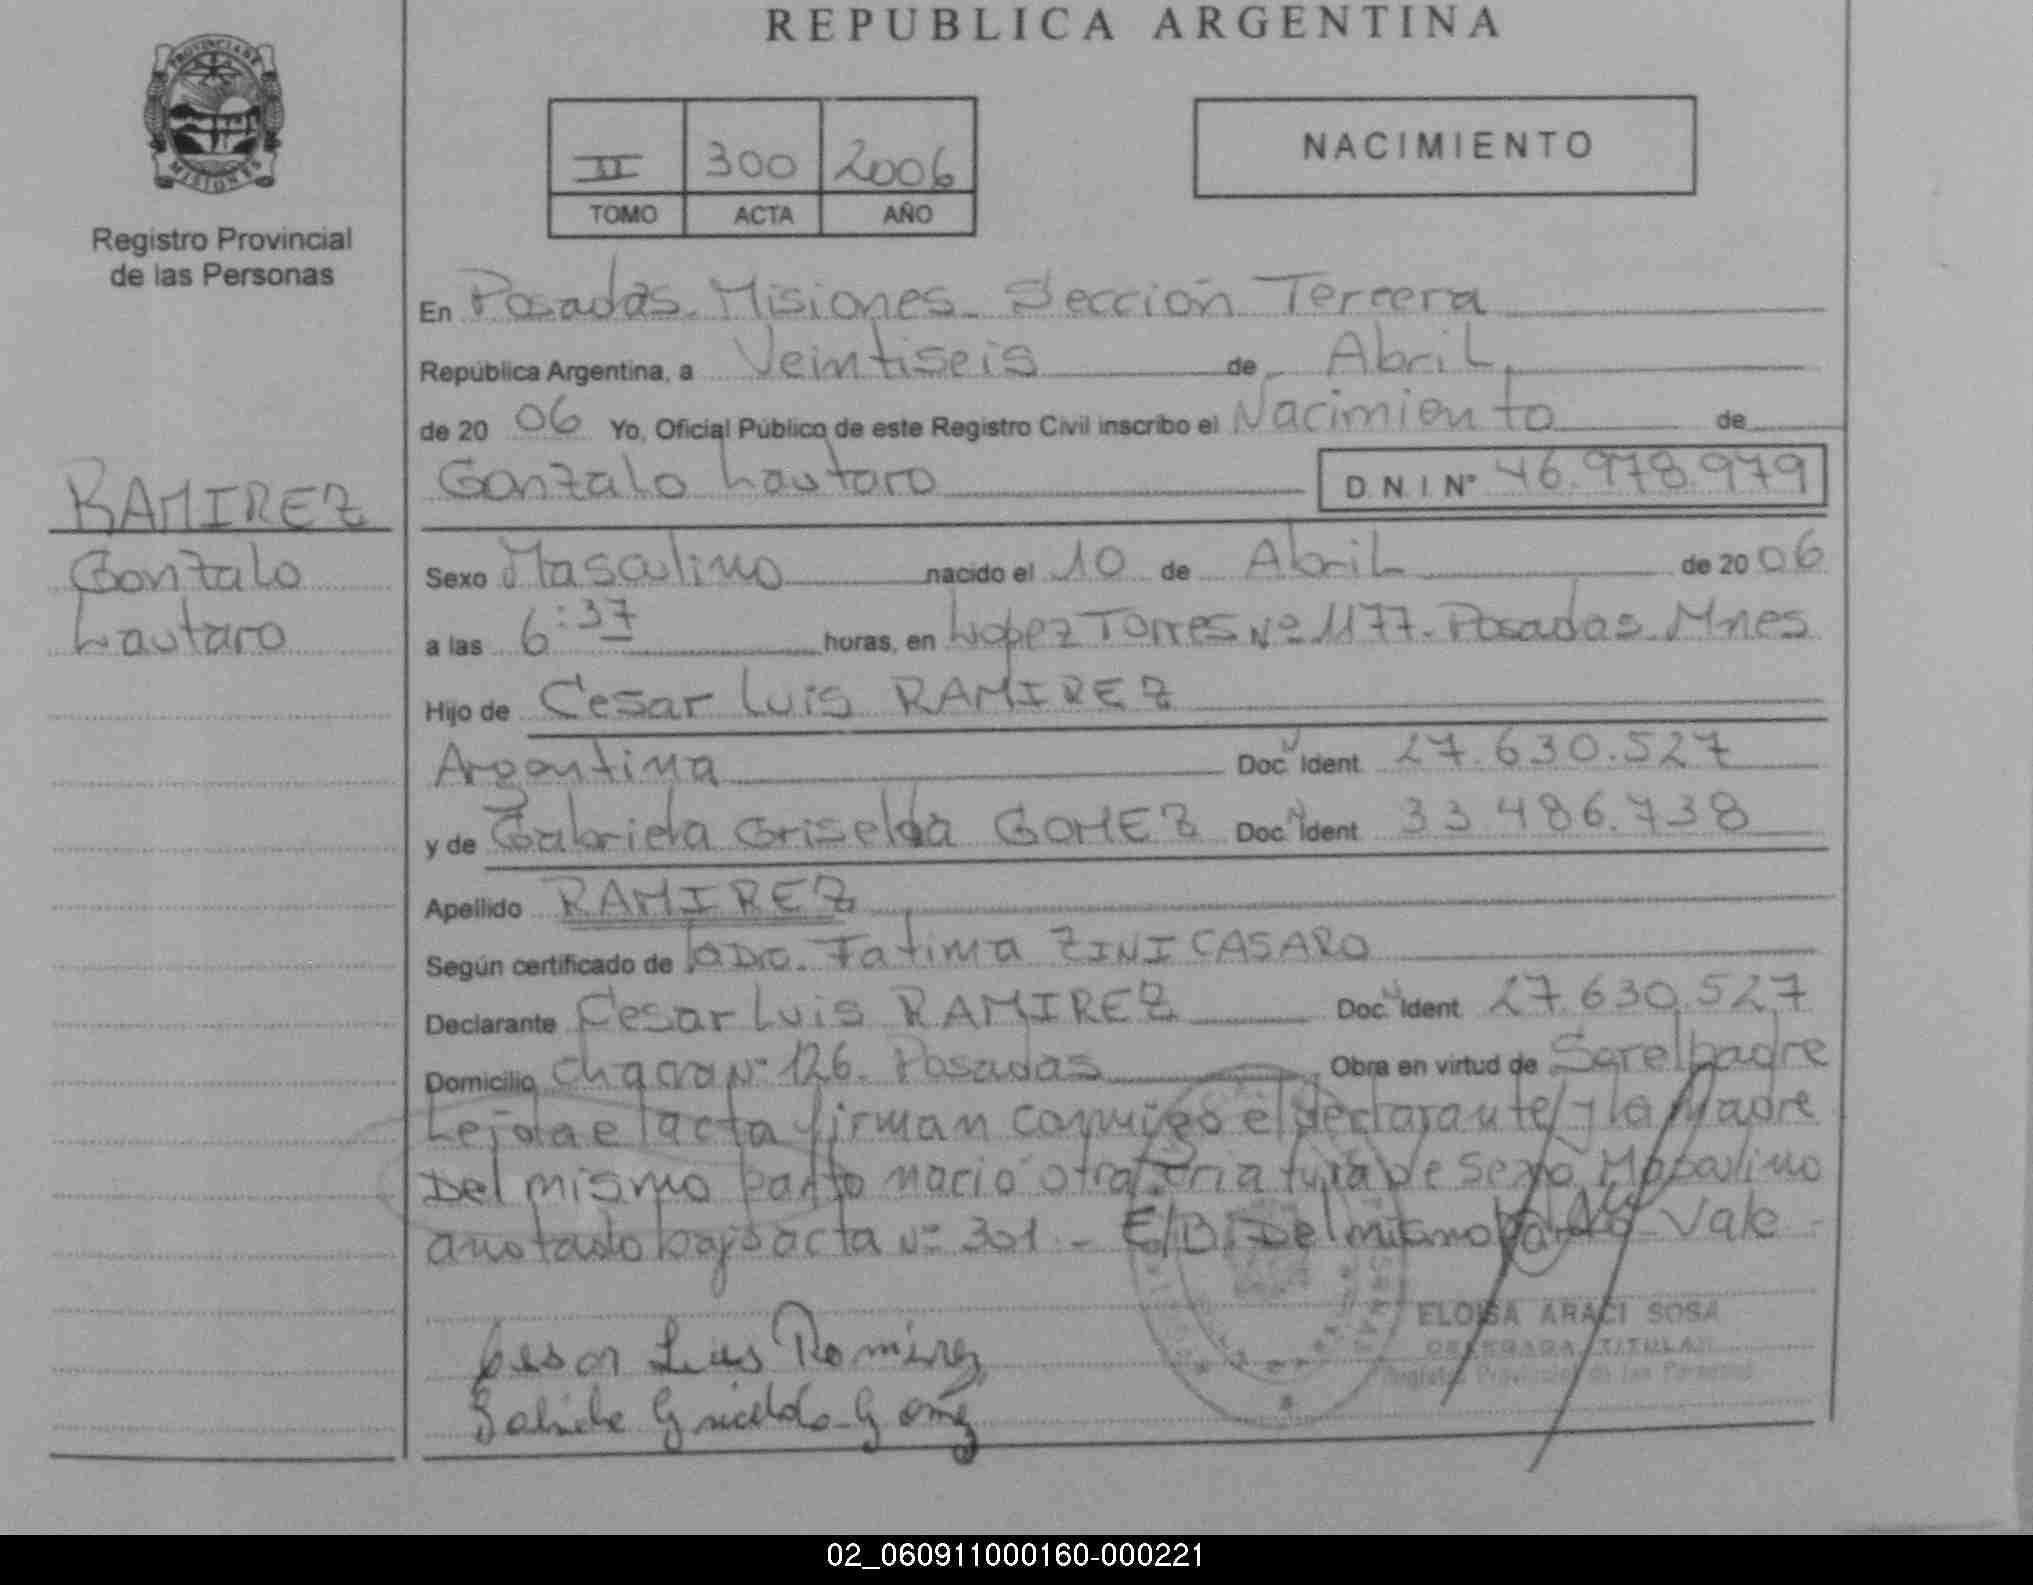 REPUBLICA ARGENTINA
PROVINCIA DE
MISIONES
Registro Provincial
de las Personas
II 300 2006
TOMO ACTA AÑO
NACIMIENTO
En Posadas. Misiones. Sección Tercera
República Argentina, a Veintiseis de Abril
de 20 06 Yo, Oficial Público de este Registro Civil inscribo el Nacimiento de
Gonzalo Lautaro D.N.I. Nº 46.978.979
RAMIREZ
Gonzalo
Lautaro
Sexo Masculino nacido el 10 de Abril de 20 06
a las 6:37 horas, en López Torres Nº 1177. Posadas. Mnes
Hijo de Cesar Luis RAMIREZ
Argentina Doc. Ident 27.630.527
y de Gabriela Griselda GOMEZ Doc. Ident 33 486.738
Apellido RAMIREZ
Según certificado de Fatima ZINI CASARO
Declarante Cesar Luis RAMIREZ Doc. Ident 27.630.527
Domicilio Chacra Nº 126. Posadas Obra en virtud de Ser el padre
Leída el acta firman conmigo el declarante y la Madre
Del mismo parto nació otra criatura de sexo Masculino
anotado bajo acta Nº 301 - E/B. Del mismo Vale
ELOISA ARACI SOSA
DELEGADA TITULAR
Registro Provincial de las Personas
Cesar Luis Ramirez
Gabriela Griselda Gomez
02_060911000160-000221